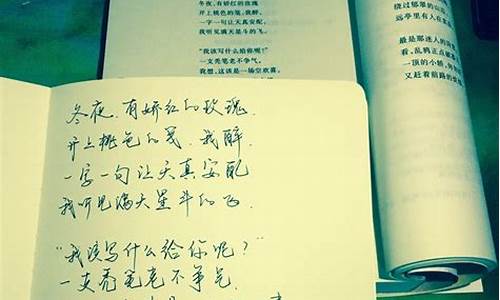 冬夜，有娇红的玫瑰
开上桃色的笺，我醉，
一字一句让天真安配，
我听见满天星斗的飞。
“我该写什么给你呢？”
一支秃笔老不争气，
我想，这该是一场空欢喜。
绕过郁翠的山
远亭里有人在
最是那迷人的
看，乱鸦正点破
一顶的小轿，
又赶着前路的
冬夜，有娇红的玫瑰，
开上桃色的笺，我醉，
一字一句让天真安配
我听见满天星斗的飞.
“我该写什么给你呢？”
一支秃笔老不争气，